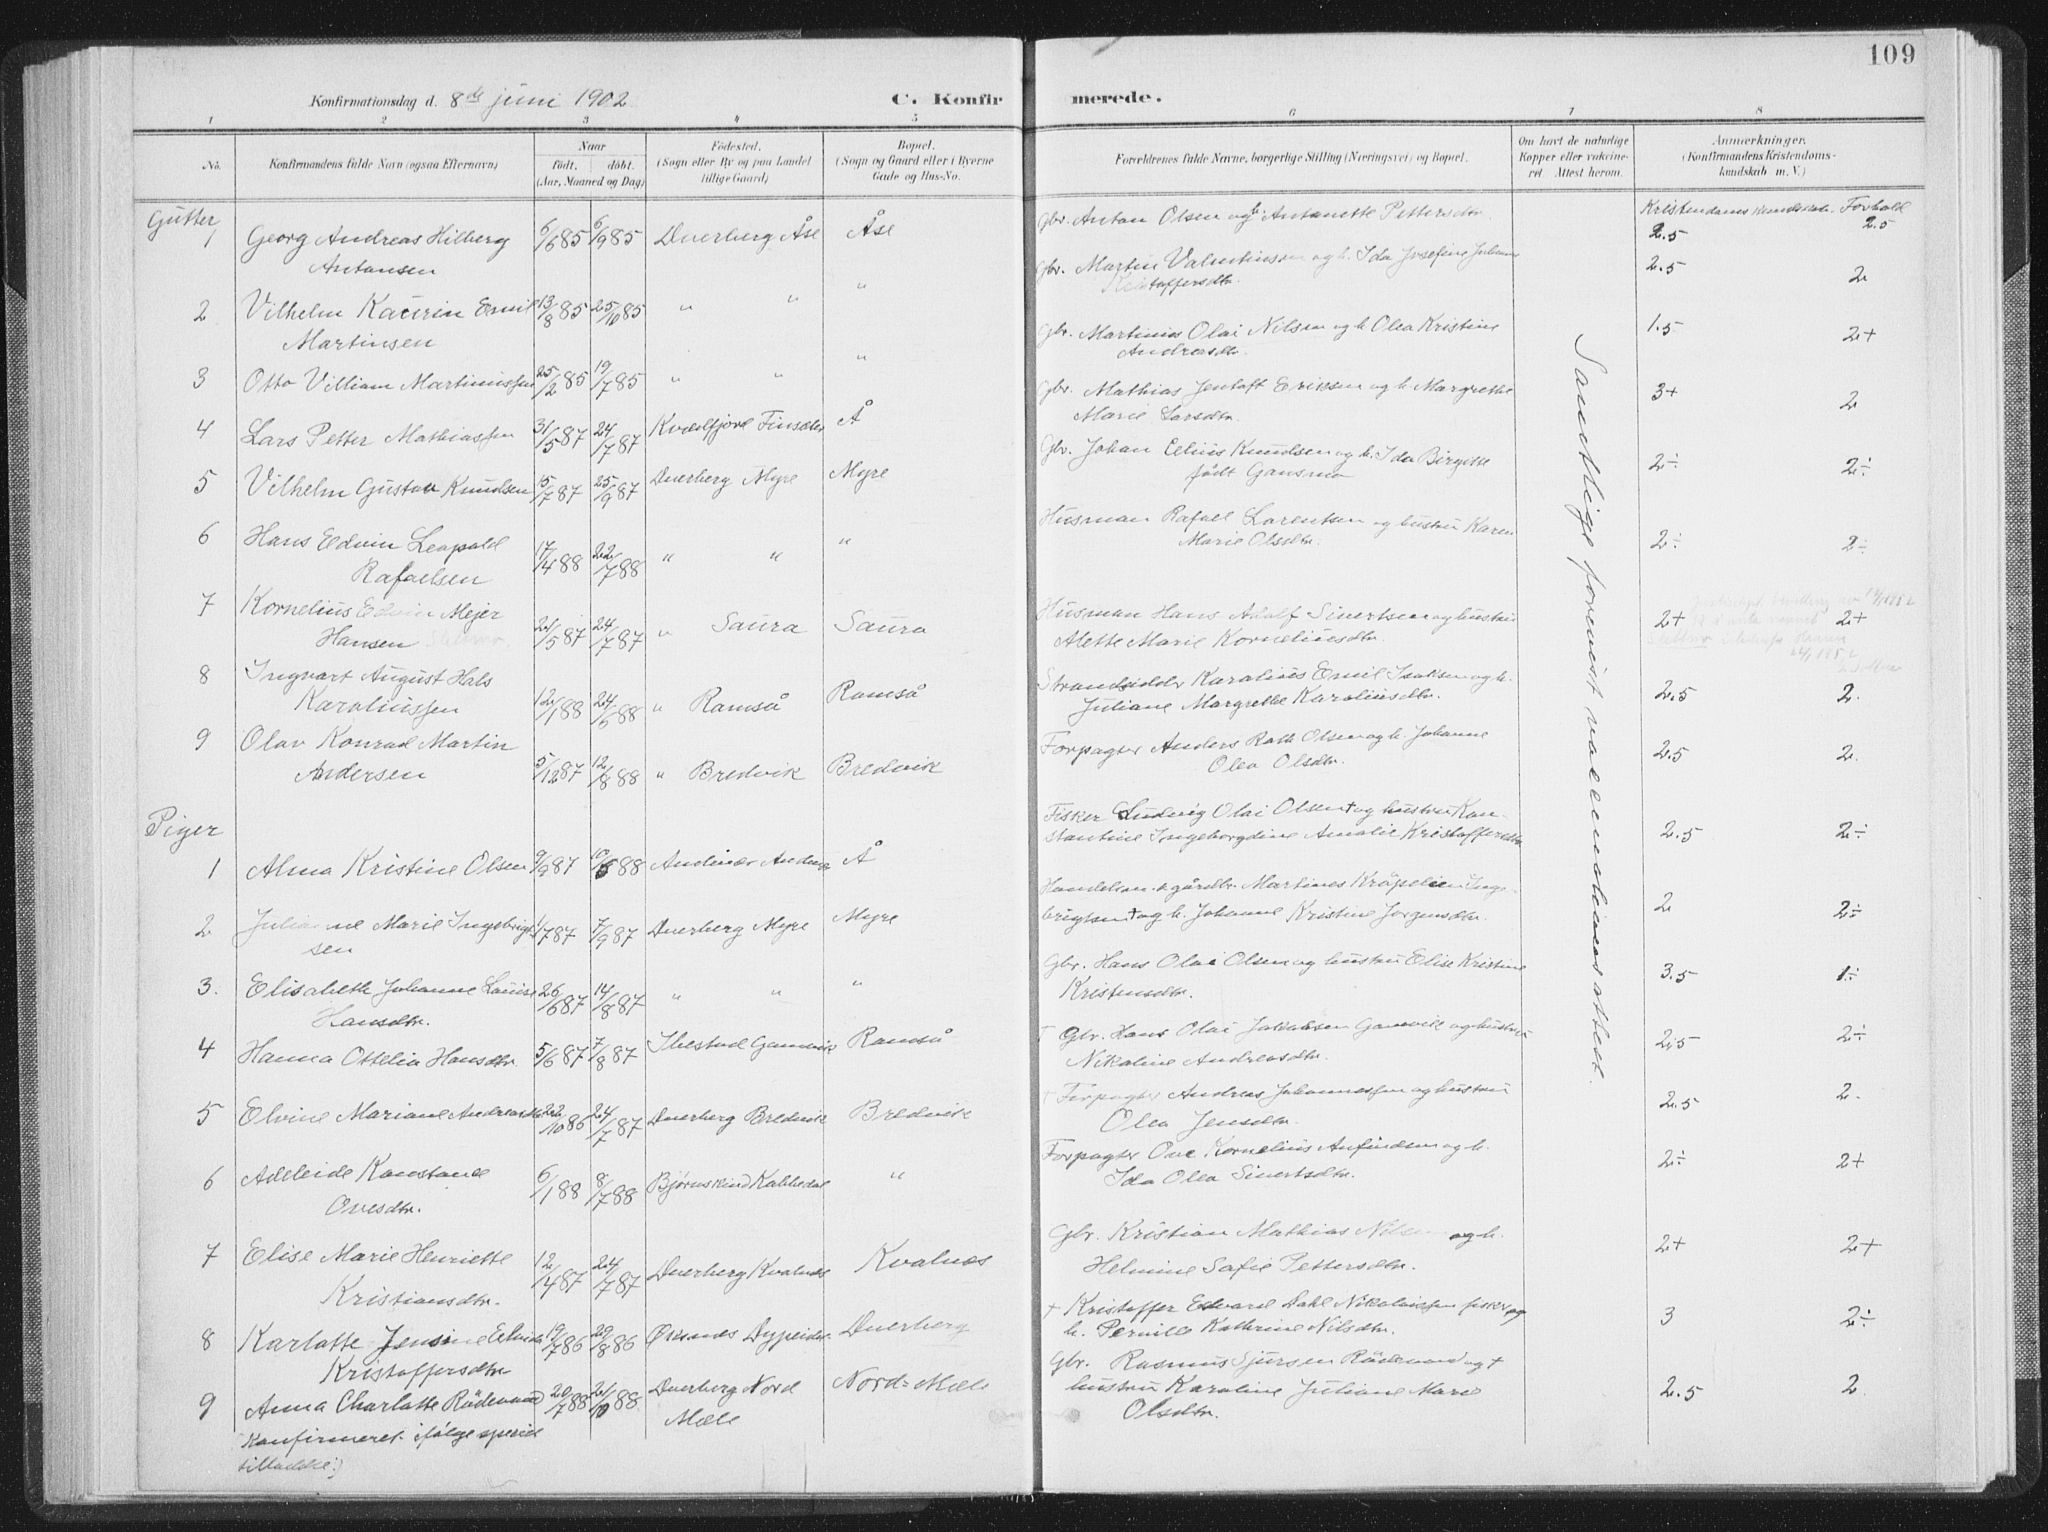 109
Konfirmationsdag d. 8de juni 1902
C. Konfirmerede.
1 2 3 4 5 6 7 8
No.
Konfirmandens fulde Navn (ogsaa Efternavn)
Naar
födt. döbt.
(Aar, Maaned og Dag)
Födested.
(Sogn eller By og paa Landet
tillige Gaard)
Bopæl.
(Sogn og Gaard eller i Byerne
Gade og Hus-No.
Forældrenes fulde Navne, borgerlige Stilling (Næringsvei) og Bopæl.
Om havt de naturlige
Kopper eller vaccine-
ret Attest herom.
Anmærkninger.
(Konfirmandens Kristendoms-
kundskab m. V.)
Kristendomskundskab. Forhold
Gutter
1 Georg Andreas Hilberg 6/6 85 6/9 85 Dverberg Åse Åse Gbr. Anton Olsen og h. Antonette Pettersdtr. 2.5 2.5
Antonsen
2 Vilhelm Kaurin Emil 13/8 85 25/10 85 " " " Gbr. Martin Valentinsen og h. Ida Josefine Julianne 2.5 2
Martinsen Kristoffersdtr.
3 Otto Villiam Martinussen 25/2 85 19/7 85 " " " Gbr. Martinus Olai Nilsen og h. Olea Kristine 1.5 2+
Andreasdtr.
4 Lars Petter Mathiassen 31/5 87 24/7 87 Kvædfjord Å Gbr. Mathias Jentoft Eriksen og h. Margrethe 3+ 2
Marie Larsdtr.
5 Vilhelm Gustav Knudsen 15/7 87 25/9 87 Dverberg Myre Myre Gbr. Johan Edvius Knudsen og h. Ida Birgitte 2÷ 2÷
født Gansmo
6 Hans Edvin Leopold 17/4 88 22/7 88 " " " Husman Rafael Lorentsen og hustru Karen 2÷ 2÷
Rafaelsen Marie Olsdtr.
7 Kornelius Edvin Mejer 21/5 87 24/7 87 " Saura Saura Husman Hans Adolf Sivertsen og hustru 2+ 2+
Hansen Alette Marie Korneliusdtr.
8 Ingvart August Hals 12/1 88 24/6 88 " Ramså Ramså Strandsidder Karolius Emil Isaksen og h. 2.5 2.
Karoliussen Juliane Margrethe Karoliusdtr.
9 Olav Konrad Martin 5/12 87 12/8 88 " Bredvik Bredvik Forpagter Anders Rath Olsen og h. Johanne 2.5 2.
Andersen Olea Olsdtr.
Samtlige forevist vaccinationsattest.
Piger
1 Alma Kristine Olsen 9/9 87 10/6 88 Andenæs Andenes Å Fisker Ludvig Olai Olsen + og hustru Kon- 2.5 2÷
stantine Ingeborgdine Amalie Kristoffersdtr
2 Julianne Marie Ingebrigt- 1/7 87 7/9 87 Dverberg Myre Myre Handelsm. & gårdbr. Martines Kröpelien Inge- 2 2÷
sen brigtsen + og h. Johanne Kristine Jørgensdtr.
3. Elisabeth Johanne Louise 26/6 87 14/8 87 " " " Gbr. Hans Olai Olsen og hustru Elise Kristine 3.5 1÷
Hansdtr. Kristensdtr.
4 Hanna Ottelia Hansdtr. 5/6 87 7/8 87 Ibestad Gamvik Ramså + Gbr. Hans Olai Jakobsen Gamvik og hustru 2,5 2÷
Nikoline Andreasdtr.
5 Elvine Mariane Andreasdtr 22/10 86 24/7 87 Dverberg Bredvik Bredvik + Forpagter Andreas Johannessen og hustru 2.5 2.
Olea Jensdtr.
6 Adeleide Konstance 6/1 88 8/7 88 Bjørnskind Kobbedal " Forpagter Ove Kornelius Anfindsen og h. 2÷ 2+
Ovesdtr. Ida Olea Sivertsdtr.
7 Elise Marie Henriette 12/4 87 24/7 87 Dverberg Kvalnæs Kvalnæs Gbr. Kristian Mathias Nilsen og h. 2+ 2+
Kristiansdtr. Helmine Sofie Pettersdtr.
8 Karlotte Jensine 19/7 86 29/8 86 Øksnes Dypeidet Dverberg + Kristoffer Edvard Dahl Nikolaissen fisker og 3 2÷
Kristoffersdtr h. Pernille Kathrine Nilsdtr.
9 Anna Charlotte Rödesand 20/7 88 21/10 88 Dverberg Nord Nord-Mæle Gbr. Rasmus Sjursen Rödesand og + 2.5 2.
Mæle hustru Karoline Juliane Marie
Konfirmeret ifølge speciel Olsdtr.
tilladelse:)